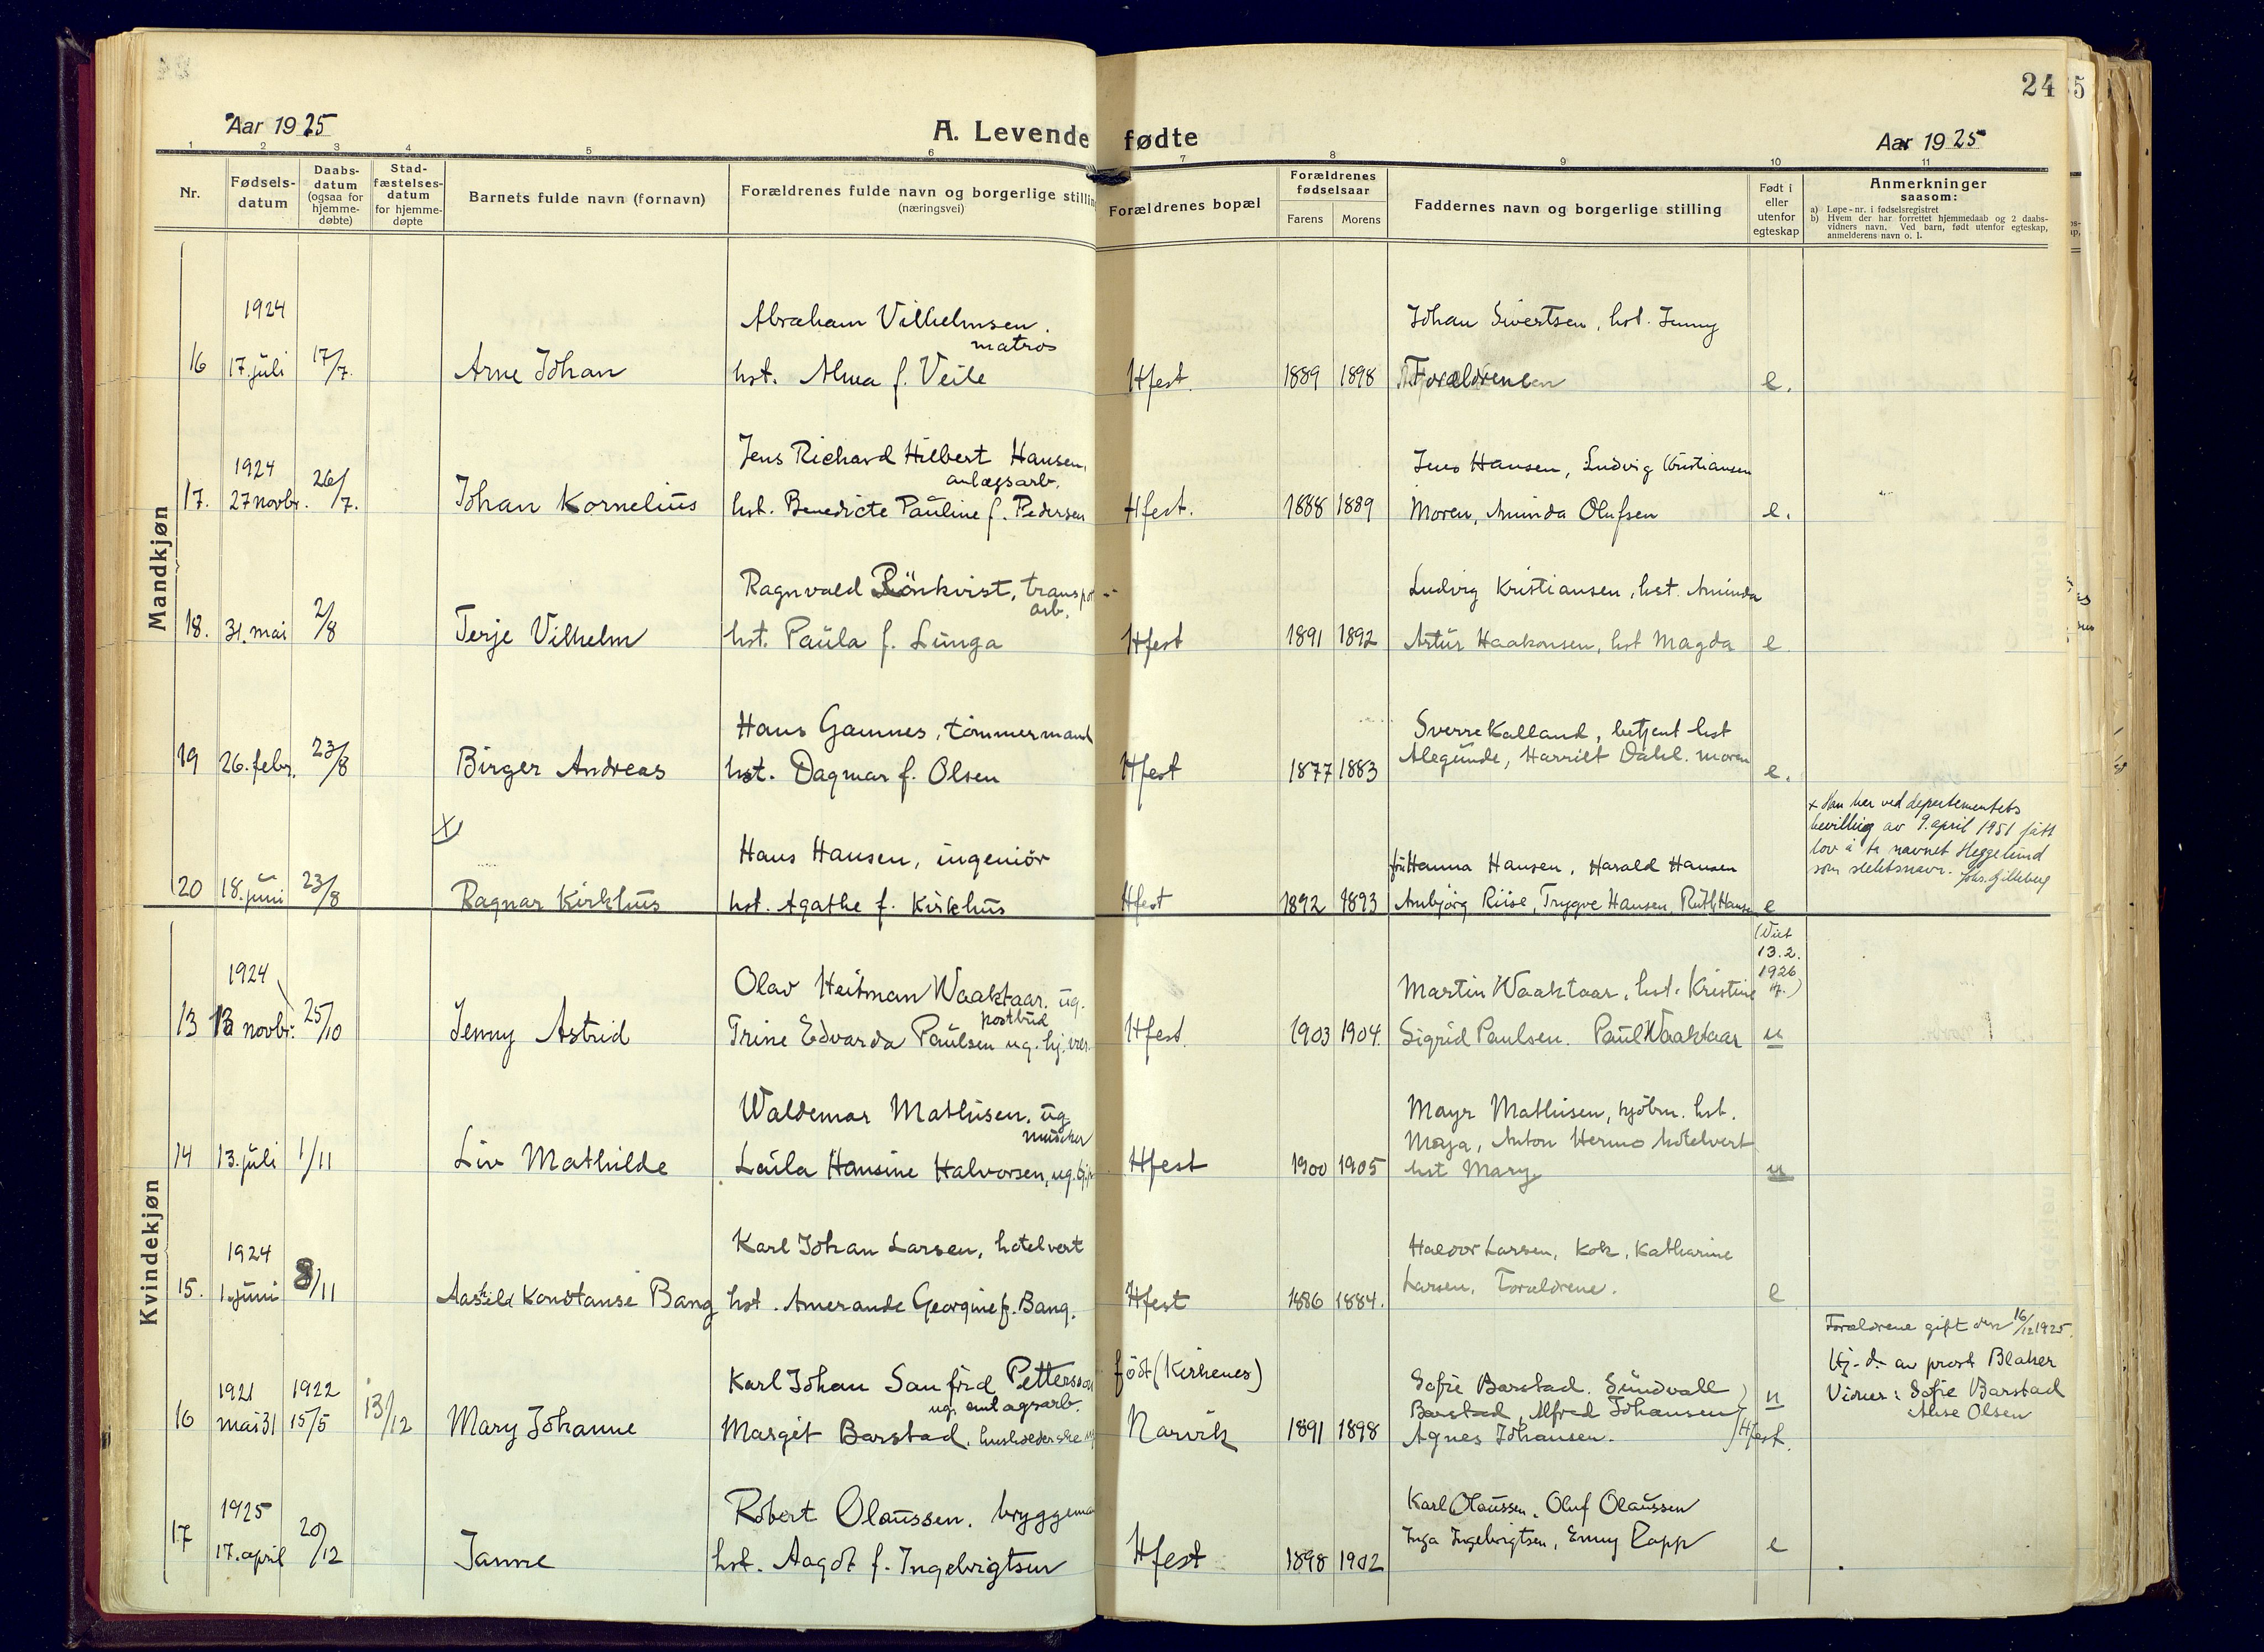 24
Aar 1925
A. Levende fødte
Aar 1925
1 2 3 4 5 6 7 8 9 10 11
Nr.
Fødsels-
datum
Daabs-
datum
(ogsaa for
hjemme-
døbte)
Stad-
fæstelses-
datum
for hjemme-
døpte
Barnets fulde navn (fornavn)
Forældrenes fulde navn og borgerlige stillin
(næringsvei)
Forældrenes bopæl
Forældrenes
fødselsaar
Farens Morens
Faddernes navn og borgerlige stilling
Født i
eller
utenfor
egteskap
Anmerkninger
saasom:
a) Løpe-nr. i fødselsregistret
b) Hvem der har forrettet hjemmedaab og 2 daabs-
vidners navn. Ved barn, født utenfor egteskap,
anmelderens navn o. l.
Mandkjøn
1924 Abraham Vilhelmsen. Johan Sivertsen, hst. Jenny
matros
16 17. juli 17/7. Arne Johan hst. Alma f. Veile Hfest. 1889 1898 Forældrene e.
Jens Richard Hilbert Hansen,
1924 anlægsarb. Jens Hansen, Ludvig Kristiansen
17. 27 novbr. 26/7. Johan Kornelius hst. Benedicte Pauline f. Pedersen Hfest. 1888 1889 Moren, Aminda Olufsen e.
Ragnvald Rönkvist, transpot- Ludvig Kristiansen, hst. Aminda
arb.
18. 31. mai 2/8 Terje Vilhelm hst. Paula f. Lunga Hfest 1891 1892 Artur Haakonsen, hst Magda e
Hans Gamnes, tömmermand Sverre Kalland, betjent hst
19 26. febr. 23/8 Birger Andreas hst. Dagmar f. Olsen Hfest 1877 1883 Alegunde, Harriet Dahl. moren e.
x Han har ved departementets
bevilling av 9. april 1951 fått
lov å ta navnet Heggelund
som slektsnavn.
x
Hans Hansen, ingeniör fru Hanna Hansen, Harald Hansen
20 18. juni 23/8 Ragnar Kirkhus hst. Agathe f. Kirkhus Hfest 1892 1893 Anbjörg Riise, Trygve Hansen, Ruth Hansen e
Kvindekjøn
(Viet
13.2.
1926
Hf.)
1924 Olav Heitman Waaktaar. ug. Martin Waaktaar, hst. Kristine
postbud
13 13 novbr. 25/10 Jenny Astrid Trine Edvarda Paulsen ug. hj. Hfest. 1903 1904. Sigrid Paulsen. Paul Waaktaar u
Waldemar Mathisen. ug Mayr Mathisen, kjöbm. hst.
Maja, Anton Hermo hotelvert
14 13. juli 1/11 Liv Mathilde Laila Hansine Halvorsen, ug. Hfest 1900 1905 hst Mary u
1924 Karl Johan Larsen, hotelvert Halvor Larsen, Kok, Katharine
15. 1. juni 8/11 Aashild Konstanse Bang hst. Amerande Georgine f. Bang. Hfest 1886 1884. Larsen, Forældrene. e
Forældrene gift den 16/12 1925.
Karl Johan Sanfrid Pettersson født (Kirkenes) Hj-d. av prost Blaker
ug. anlagsarb. Sofie Barstad. Sundvall Vidner: Sofie Barstad
1921 1922 Barstad, Alfred Johansen u Alise Olsen
16 mai 31 15/5 13/12 Mary Johanne Margit Barstad, husholderske Narvik 1891 1898 Agnes Johansen. Hfest.
1925 Robert Olaussen. bryggema Karl Olaussen. Oluf Olaussen
17 17. april 20/12 Janne hst. Aagot f. Ingebrigtsen Hfest 1898 1902 Inga Ingebrigtsen, Enny Rapp e